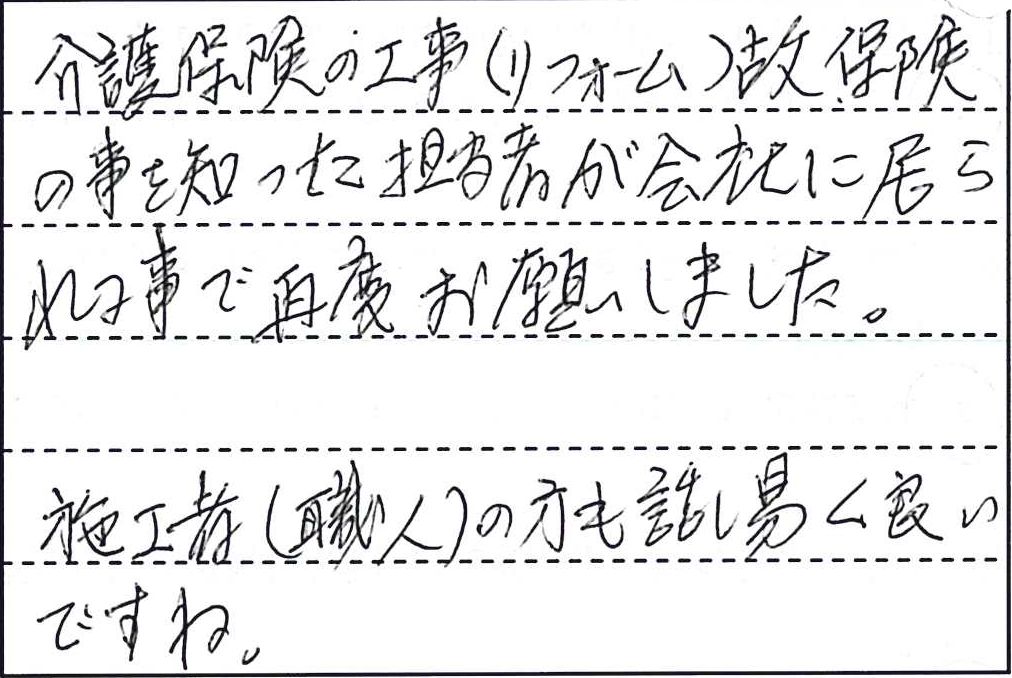 介護保険の工事(リフォーム)故保険
の事を知った担当者が会社に居ら
れる事で再度お願いしました。
施工者(職人)の方も話し易く良い
ですね。